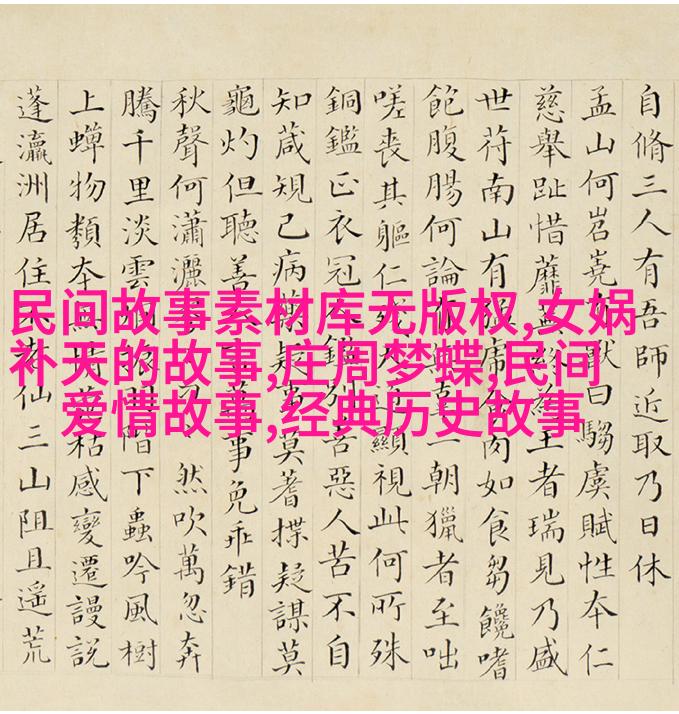 民间故事素材库无版权,女娲
补天的故事,庄周梦蝶,民间
爱情故事,经典历史故事
自脩三人有吾師近取乃日休
孟山何岧嶤獸曰騶虞賦性本仁
慈舉趾惜蘼王者瑞見乃盛
世苻南山有食肉如食芻饞嗜
飽腹腸何論一朝獵者至咄
嗟喪其軀仁殘顯視此何所殊
銅鑑正衣冠鑑別善惡人苦不自
知蒧規己病莫蓍揲疑謀莫
龜灼但聽善事免乖錯
秋聲何瀟灑然吹萬忽奔
騰千里淡雲階下蟲吟風樹
上蟬物類本情枯感變遷謾説
蓬瀛洲居住老仙三山阻且遥荒